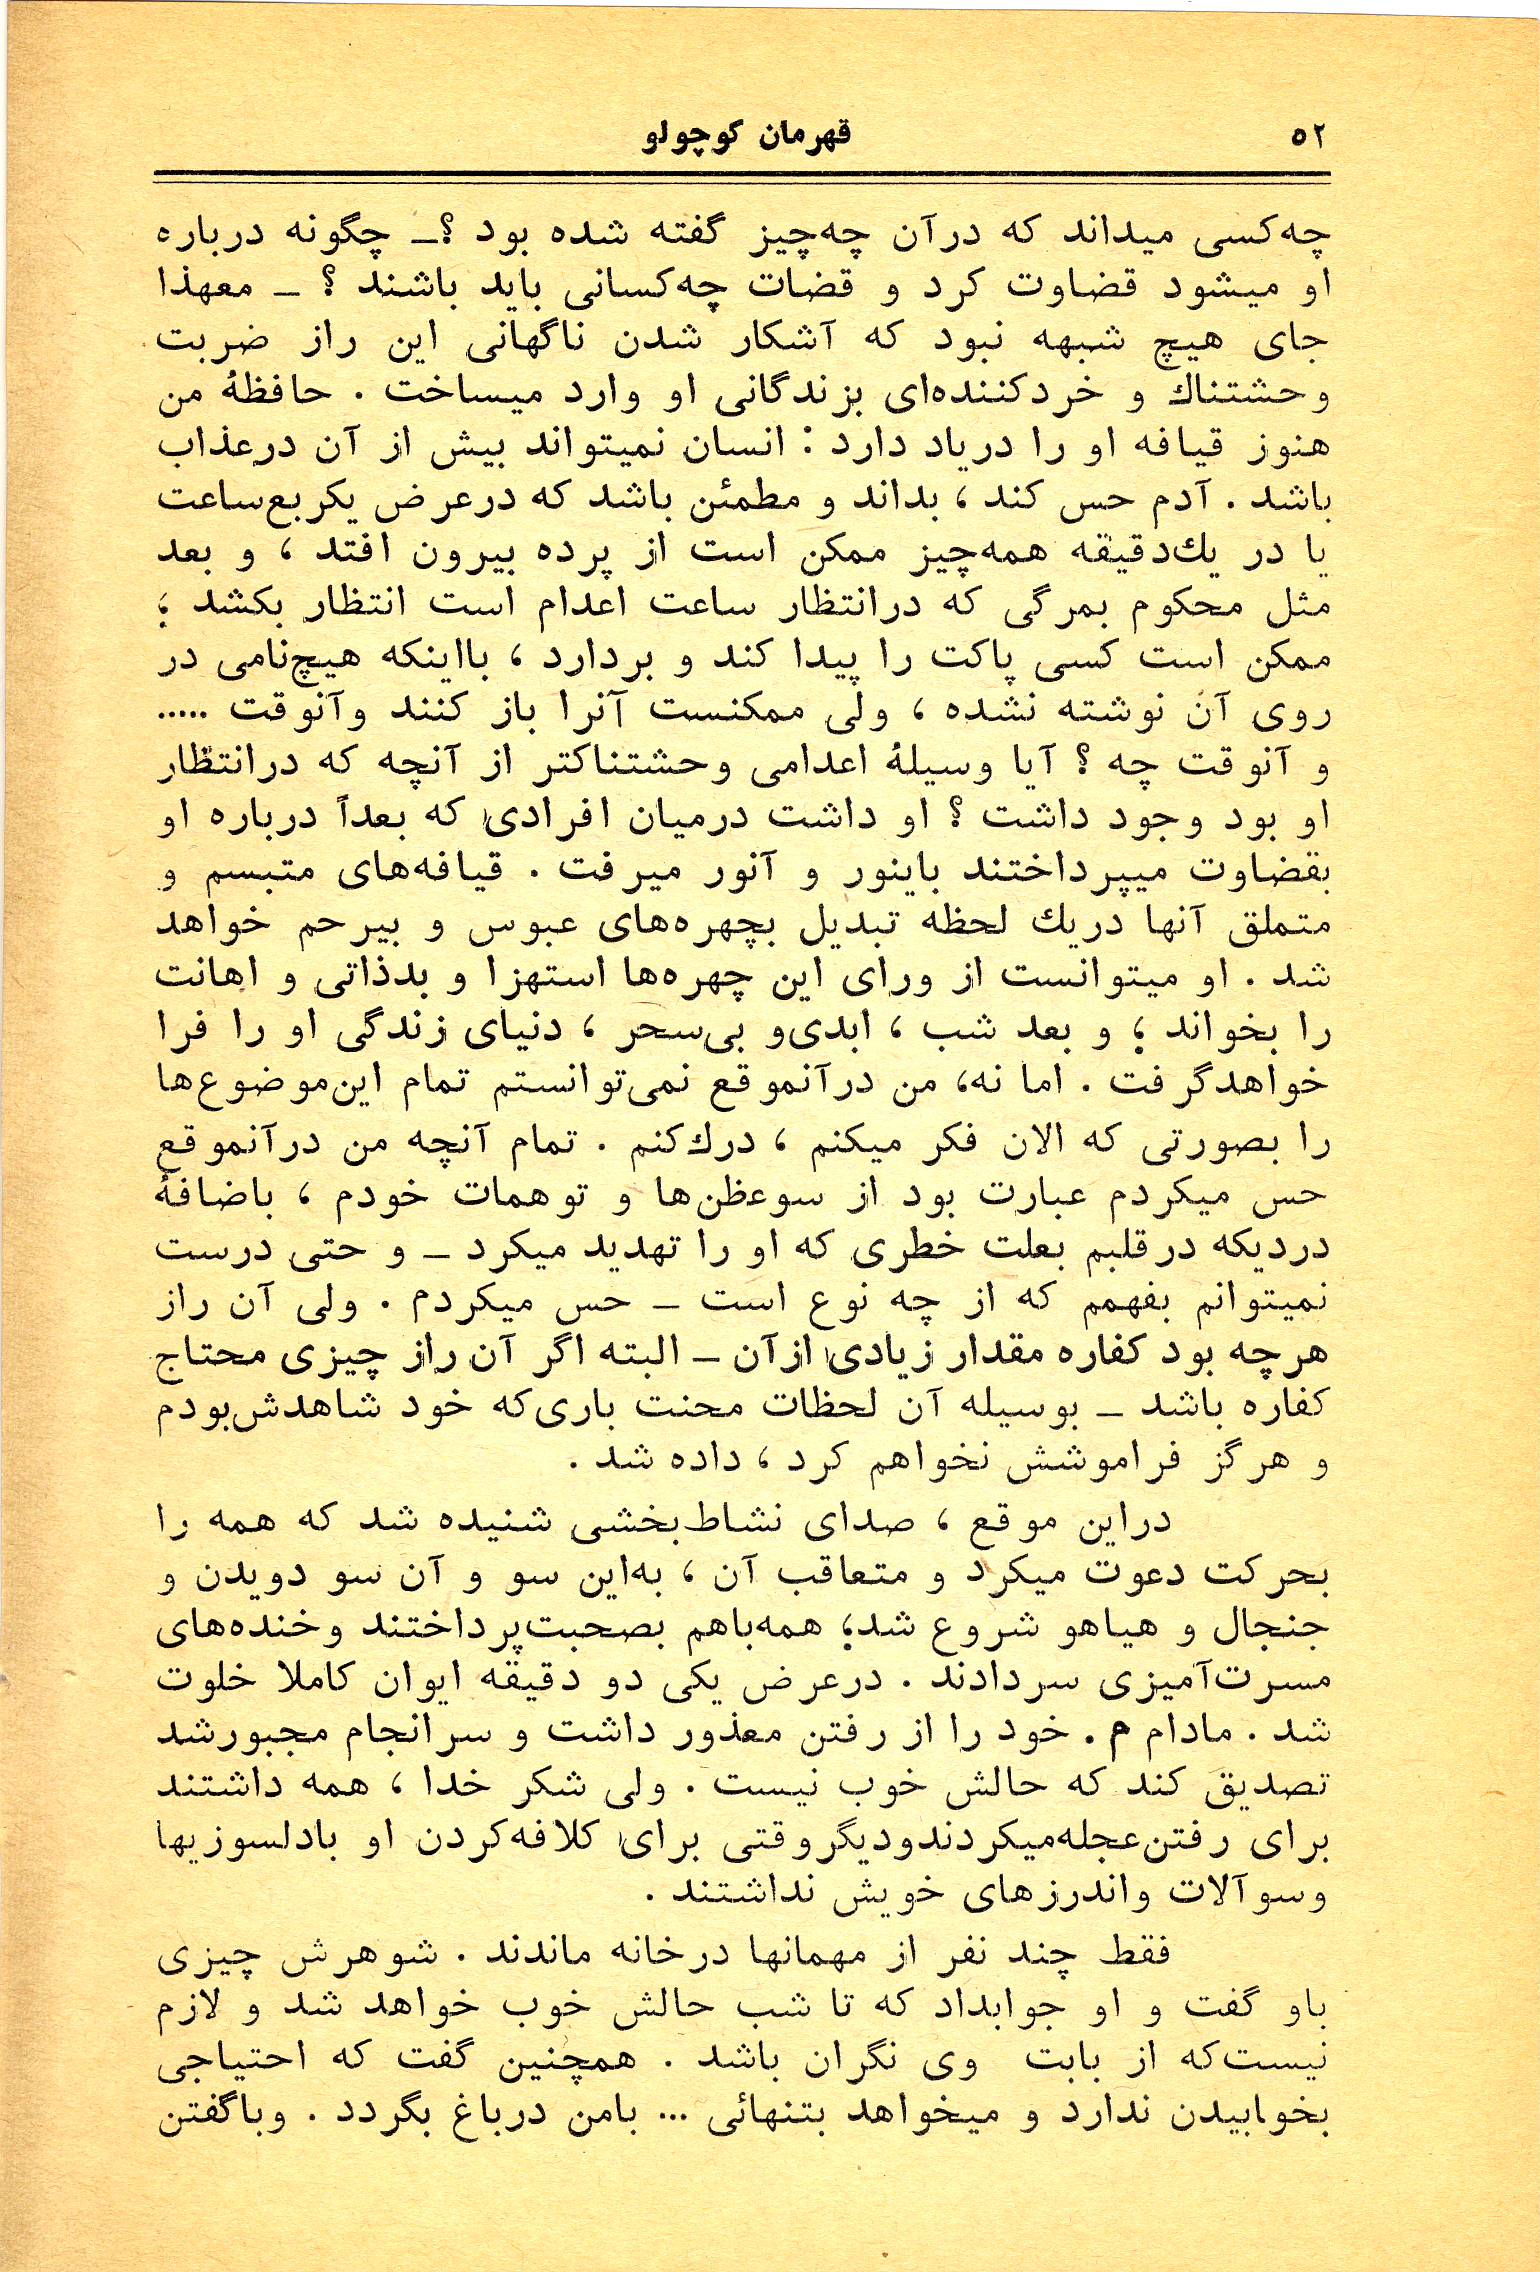 ۵۲
قهرمان کوچولو
چه‌کسی میداند که درآن چه‌چیز گفته شده بود ؟ـ چگونه درباره
او میشود قضاوت کرد و قضات چه‌کسانی باید باشند ؟ ـ معهذا
جای هیچ شبهه نبود که آشکار شدن ناگهانی این راز ضربت
وحشتناك و خردکننده‌ای بزندگانی او وارد میساخت . حافظهٔ من
هنوز قیافه او را دریاد دارد : انسان نمیتواند بیش از آن درعذاب
باشد . آدم حس کند ، بداند و مطمئن باشد که درعرض یکربع‌ساعت
یا در یك‌دقیقه همه‌چیز ممکن است از پرده بیرون افتد ، و بعد
مثل محکوم بمرگی که درانتظار ساعت اعدام است انتظار بکشد ؛
ممکن است کسی پاکت را پیدا کند و بردارد ، بااینکه هیچ‌نامی در
روی آن نوشته نشده ، ولی ممکنست آنرا باز کنند وآنوقت .....
و آنوقت چه ؟ آیا وسیلهٔ اعدامی وحشتناکتر از آنچه که درانتظار
او بود وجود داشت ؟ او داشت درمیان افرادی که بعداً درباره او
بقضاوت میپرداختند باینور و آنور میرفت . قیافه‌های متبسم و
متملق آنها دریك لحظه تبدیل بچهره‌های عبوس و بیرحم خواهد
شد . او میتوانست از ورای این چهره‌ها استهزا و بدذاتی و اهانت
را بخواند ؛ و بعد شب ، ابدی‌و بی‌سحر ، دنیای زندگی او را فرا
خواهدگرفت . اما نه، من درآنموقع نمی‌توانستم تمام این‌موضوع‌ها
را بصورتی که الان فکر میکنم ، درك‌کنم . تمام آنچه من درآنموقع
حس میکردم عبارت بود از سوعظن‌ها و توهمات خودم ، باضافهٔ
دردیکه درقلبم بعلت خطری که او را تهدید میکرد ـ و حتی درست
نمیتوانم بفهمم که از چه نوع است ـ حس میکردم . ولی آن راز
هرچه بود کفاره مقدار زیادی ازآن ـ البته اگر آن راز چیزی محتاج
کفاره باشد ـ بوسیله آن لحظات محنت باری‌که خود شاهدش‌بودم
و هرگز فراموشش نخواهم کرد ، داده شد .
دراین موقع ، صدای نشاط‌بخشی شنیده شد که همه را
بحرکت دعوت میکرد و متعاقب آن ، به‌این سو و آن سو دویدن و
جنجال و هیاهو شروع شد؛ همه‌باهم بصحبت‌پرداختند وخنده‌های
مسرت‌آمیزی سردادند . درعرض یکی دو دقیقه ایوان کاملا خلوت
شد . مادام م . خود را از رفتن معذور داشت و سرانجام مجبورشد
تصدیق کند که حالش خوب نیست . ولی شکر خدا ، همه داشتند
برای رفتن‌عجله‌میکردندودیگروقتی برای کلافه‌کردن او بادلسوزیها
وسوآلات واندرزهای خویش نداشتند .
فقط چند نفر از مهمانها درخانه ماندند . شوهرش چیزی
باو گفت و او جوابداد که تا شب حالش خوب خواهد شد و لازم
نیست‌که از بابت وی نگران باشد . همچنین گفت که احتیاجی
بخوابیدن ندارد و میخواهد بتنهائی ... بامن درباغ بگردد . وباگفتن